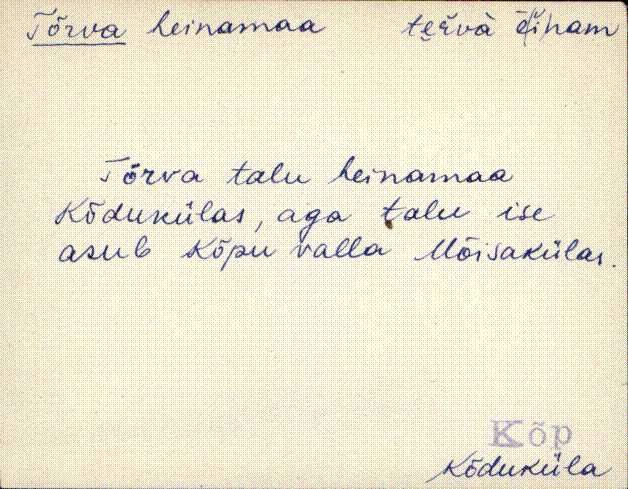 Tõrva heinamaa te̮r̆và ĕ(i̯)nam
Tõrva talu heinamaa
Kõdukülas, aga talu ise
asub Kõpu valla Mõisakülas.
Kõp
Kõduküla